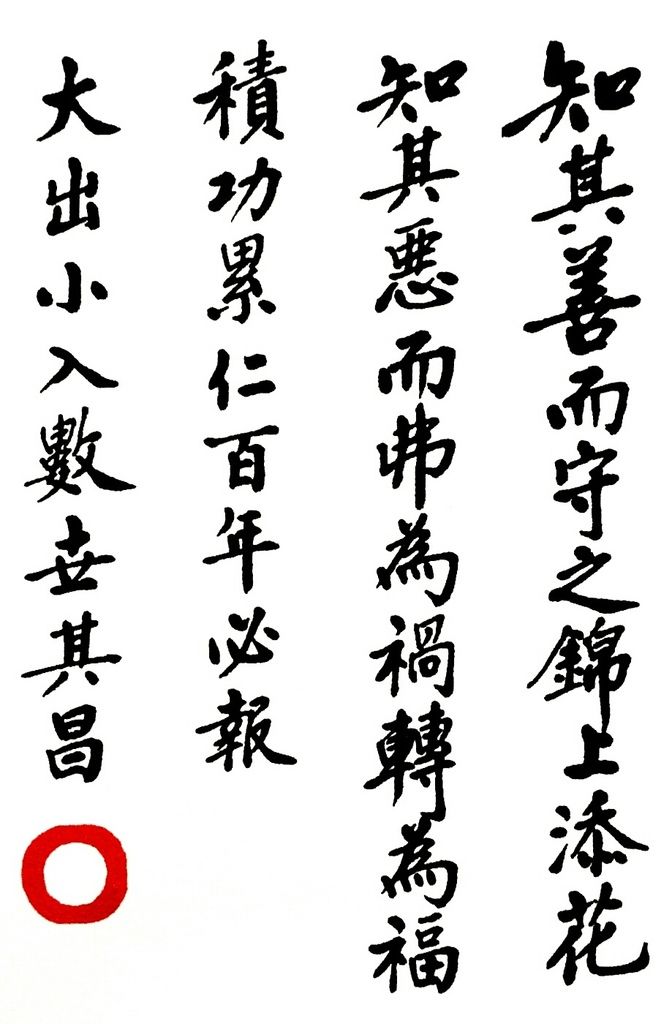 知其善而守之錦上添花
知其惡而弗為禍轉為福
積功累仁百年必報
大出小入數世其昌